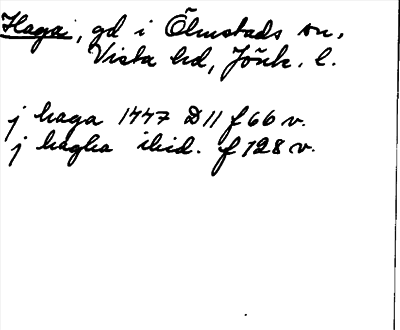 Haga, gd i Ölmstads sn,
Vista hd, Jönk. l.
j haga 1447 D 11 f 66 v.
j hagha ibid. f 128 v.